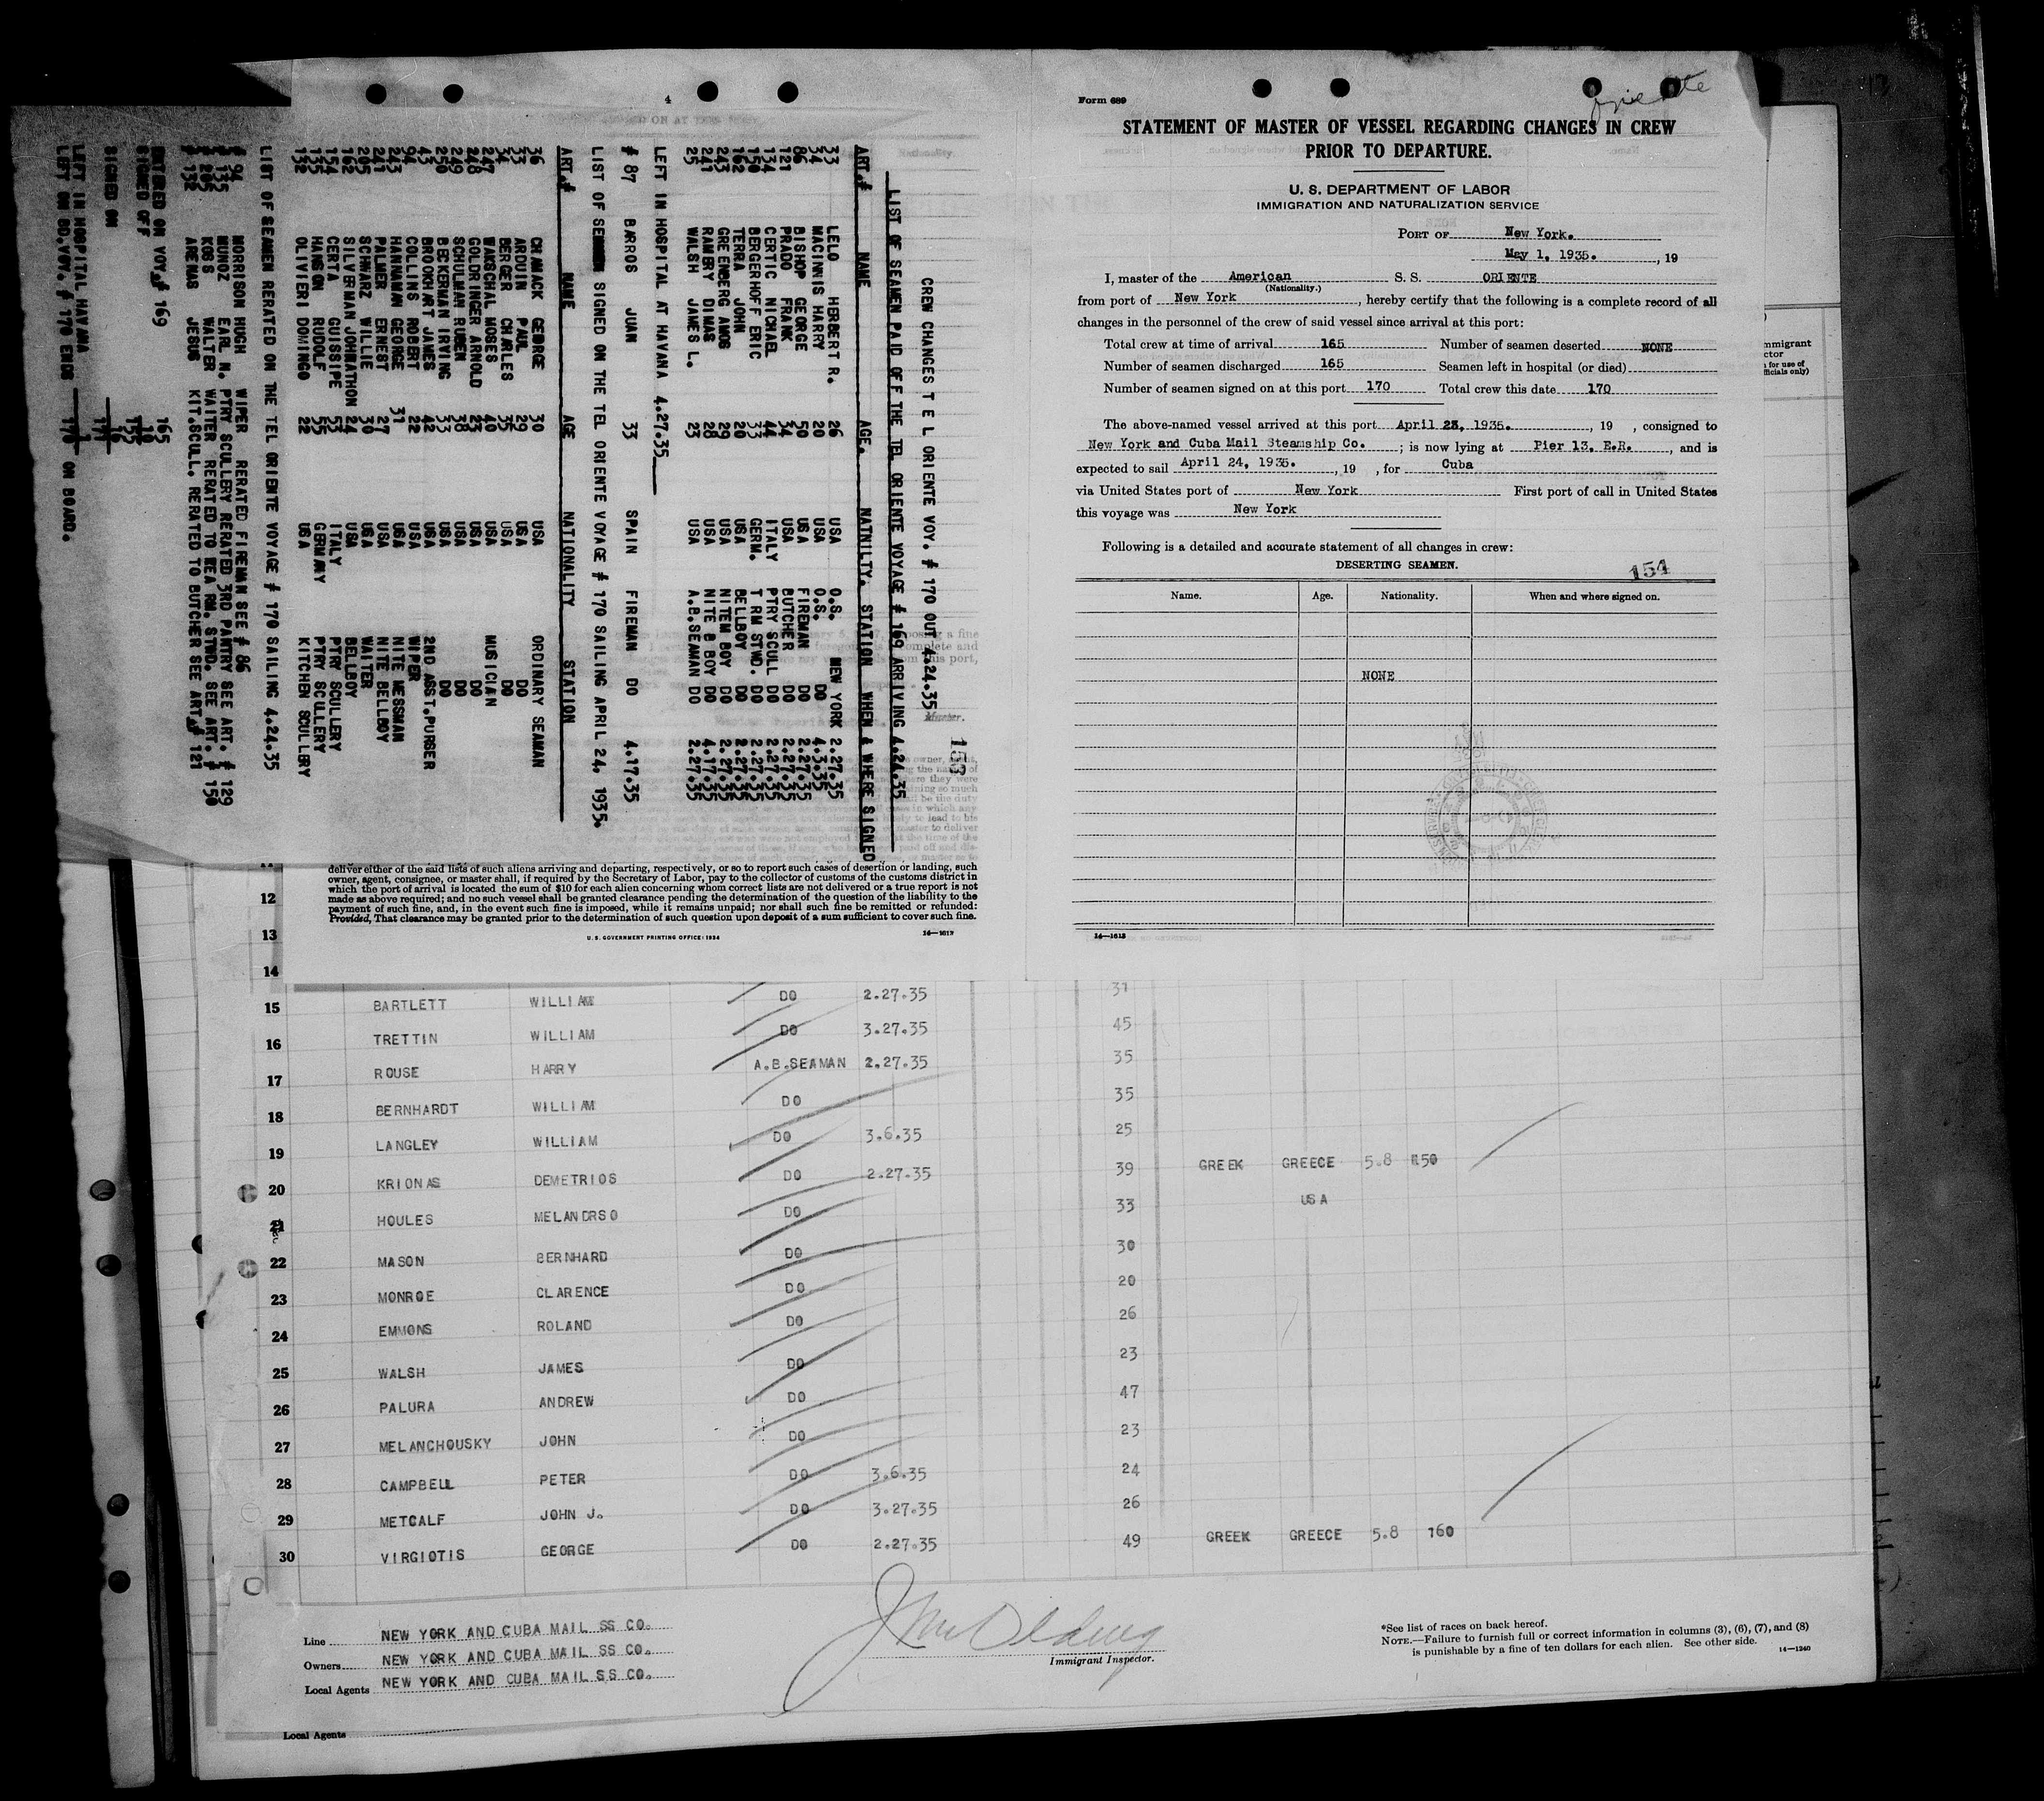 Form 689
Oriente
STATEMENT OF MASTER OF VESSEL REGARDING CHANGES IN CREW
PRIOR TO DEPARTURE.
U. S. DEPARTMENT OF LABOR
IMMIGRATION AND NATURALIZATION SERVICE
PORT OF New York.
May 1, 1935. , 19
I, master of the American S. S. ORIENTE
(Nationality.)
from port of New York , hereby certify that the following is a complete record of all
changes in the personnel of the crew of said vessel since arrival at this port:
Total crew at time of arrival 165 Number of seamen deserted NONE
Number of seamen discharged 165 Seamen left in hospital (or died)
Number of seamen signed on at this port 170 Total crew this date 170
The above-named vessel arrived at this port April 23, 1935. , 19 , consigned to
New York and Cuba Mail Steamship Co. ; is now lying at Pier 13, E.R. , and is
expected to sail April 24, 1935. , 19 , for Cuba
via United States port of New York First port of call in United States
this voyage was New York
Following is a detailed and accurate statement of all changes in crew:
DESERTING SEAMEN.
154
Name. Age. Nationality. When and where signed on.
NONE
14—1613
4
153
CREW CHANGES T E L ORIENTE VOY. # 170 OUT 4.24.35
LIST OF SEAMEN PAID OFF THE TEL ORIENTE VOYAGE # 169 ARRIVING 4.24.35
ART.# NAME AGE. NATNILTY. STATION WHEN & WHERE SIGNED
33 LELO HERBERT R. 26 USA O.S. NEW YORK 2.27.35
34 MACINNIS HARRY 20 USA O.S. DO 4.3.35
86 BISHOP GEORGE 50 USA FIREMAN DO 2.27.35
121 PRADO FRANK 34 USA BUTCHER DO 2.27.35
134 CERTIC NICHAEL 44 ITALY PTRY SCULL DO 2.27.35
150 BERGERHOFF ERIC 33 GERM. T RM STWD. DO 2.27.35
162 TERRA JOHN 20 USA BELLBOY DO 2.27.35
243 GREENBERG AMOS 29 USA NITEM BOY DO 2.27.35
241 RAMERY DIMAS 28 USA NITE B BOY DO 4.17.35
25 WALSH JAMES L. 23 USA A.B.SEAMAN DO 2.27.35
LEFT IN HOSPITAL AT HAVANA 4.27.35
# 87 BARROS JUAN 33 SPAIN FIREMAN DO 4.17.35
LIST OF SEMMEN SIGNED ON THE TEL ORIENTE VOYAGE # 170 SAILING APRIL 24. 1935.
ART.# NAME AGE NATIONALITY STATION
36 CHAMACK GEORGE 30 USA ORDINARY SEAMAN
33 ARDUIN PAUL 29 USA DO
34 BERGER CHARLES 35 USA DO
247 WAKSCHAL MOSES 40 USA MUSICIAN
248 GOLDRINGER ARNOLD 23 USA DO
249 SCHULMAN RUBEN 38 USA DO
250 BECKERMAN IRVING 33 USA DO
43 BROOKHART JAMES 42 USA 2ND ASST.PURSER
94 COLLINS ROBERT 22 USA WIPER
243 HANNAMAN GEORGE 31 USA NITE MESSMAN
241 PALMER ERNEST 27 USA NITE BELLBOY
205 SCHWARZ WILLIE 30 USA WAITER
162 SILVERMAN JOHNATHON 24 USA BELLBOY
154 CERTA GUISSIPE 53 ITALY PTRY SCULLERY
135 HANSON RUDOLF 55 GERMANY PTRY SCULLERY
132 OLIVIERI DOMINGO 22 USA KITCHEN SCULLERY
LIST OF SEAMEN RERATED ON THE TEL ORIENTE VOYAGE # 170 SAILING 4.24.35
# 94 MORRISON HUGH WIPER RERATED FIREMAN SEE # 86
# 135 MUNOZ EARL N. PTRY SCULLERY RERATED 3RD PANTRY SEE ART. # 129
# 205 KOSS WALTER WAITER RERATED TO TEA RM. STWD. SEE ART. # 150
# 132 ARENAS JESUS KIT.SCULL. RERATED TO BUTCHER SEE ART.# 121
ENTERED ON VOY.# 169 165
SIGNED OFF 10
155
SIGNED ON 16
171
LEFT IN HOSPITAL HAVANA 1
LEFT ON BD.VOY. # 170 ENDS 170 ON BOARD.
deliver either of the said lists of such aliens arriving and departing, respectively, or so to report such cases of desertion or landing, such
owner, agent, consignee, or master shall, if required by the Secretary of Labor, pay to the collector of customs of the customs district in
which the port of arrival is located the sum of $10 for each alien concerning whom correct lists are not delivered or a true report is not
made as above required; and no such vessel shall be granted clearance pending the determination of the question of the liability to the
payment of such fine, and, in the event such fine is imposed, while it remains unpaid; nor shall such fine be remitted or refunded:
Provided, That clearance may be granted prior to the determination of such question upon deposit of a sum sufficient to cover such fine.
U. S. GOVERNMENT PRINTING OFFICE: 1934
14—1613
12
13
14
15 BARTLETT WILLIAM DO 2.27.35 31
16 TRETTIN WILLIAM DO 3.27.35 45
17 ROUSE HARRY A.B.SEAMAN 2.27.35 35
18 BERNHARDT WILLIAM DO 35
19 LANGLEY WILLIAM DO 3.6.35 25
20 KRIONAS DEMETRIOS DO 2.27.35 39 GREEK GREECE 5.8 150
21 HOULES MELANDRSO DO 33 USA
22 MASON BERNHARD DO 30
23 MONROE CLARENCE DO 20
24 EMMONS ROLAND DO 26
25 WALSH JAMES DO 23
26 PALURA ANDREW DO 47
27 MELANCHOUSKY JOHN DO 23
28 CAMPBELL PETER DO 3.6.35 24
29 METCALF JOHN J. DO 3.27.35 26
30 VIRGIOTIS GEORGE DO 2.27.35 49 GREEK GREECE 5.8 160
Line NEW YORK AND CUBA MAIL SS CO.
Owners NEW YORK AND CUBA MAIL SS CO.
Local Agents NEW YORK AND CUBA MAIL SS CO.
Immigrant Inspector.
*See list of races on back hereof.
NOTE.—Failure to furnish full or correct information in columns (3), (6), (7), and (8)
is punishable by a fine of ten dollars for each alien. See other side.
14—1240
Local Agents